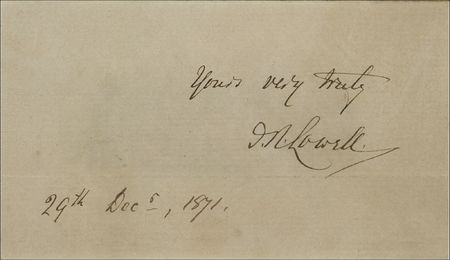 Yours very truly
J. R. Lowell.
29th Decr, 1871.